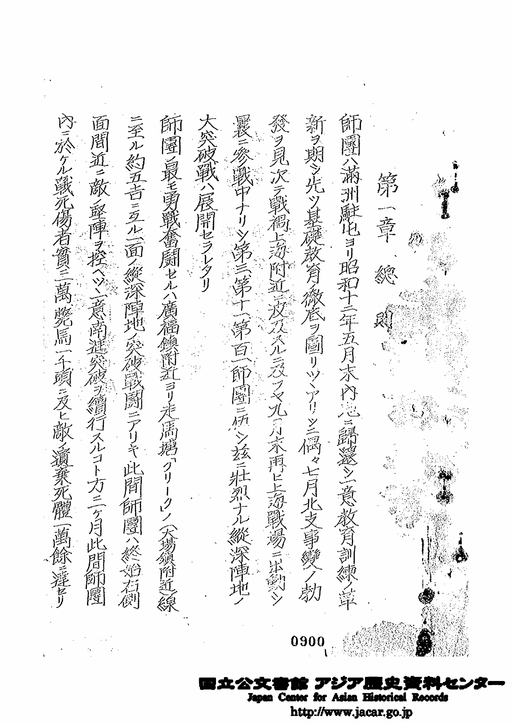 第一章 總則
師團ハ滿洲駐屯ヨリ昭和十二年五月末內地ニ歸還シ一意教育訓練ノ革
新ヲ期シ先ツ基礎教育ノ徹底ヲ圖リツヽアリシニ偶々七月北支事變ノ勃
發ヲ見次テ戰禍上海附近ニ波及スルニ及フヤ九月末再ヒ上海戰場ニ出動シ
曩ニ參戰中ナリシ第三第十一第百一師團ニ伍シ茲ニ壯烈ナル縱深陣地ノ
大突破戰ハ展開セラレタリ
師團ノ最モ勇戰奮鬪セルハ廣福鎭附近ヨリ走馬塘「クリーク」ノ(大場鎭附近)線
ニ至ル約五吉ニ亙ル一面ノ縱深陣地ノ突破戰鬪ニアリキ此間師團ハ終始右側
面間近ニ敵ノ堅陣ヲ控ヘツヽ一意南進突破ヲ續行スルコト方ニ一ヶ月此間師團
內ニ於ケル戰死傷者實ニ一萬斃馬一千頭ニ及ヒ敵ノ遺棄死體一萬餘ニ達セリ
0900
国立公文書館 アジア歴史資料センター
Japan Center for Asian Historical Records
http://www.jacar.go.jp